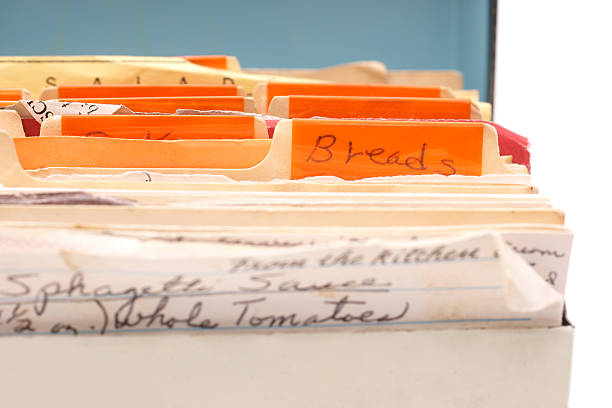 SALAD
Breads
From the Kitchen
Sphagetti Sauce
1/2 oz.) Whole Tomatoes